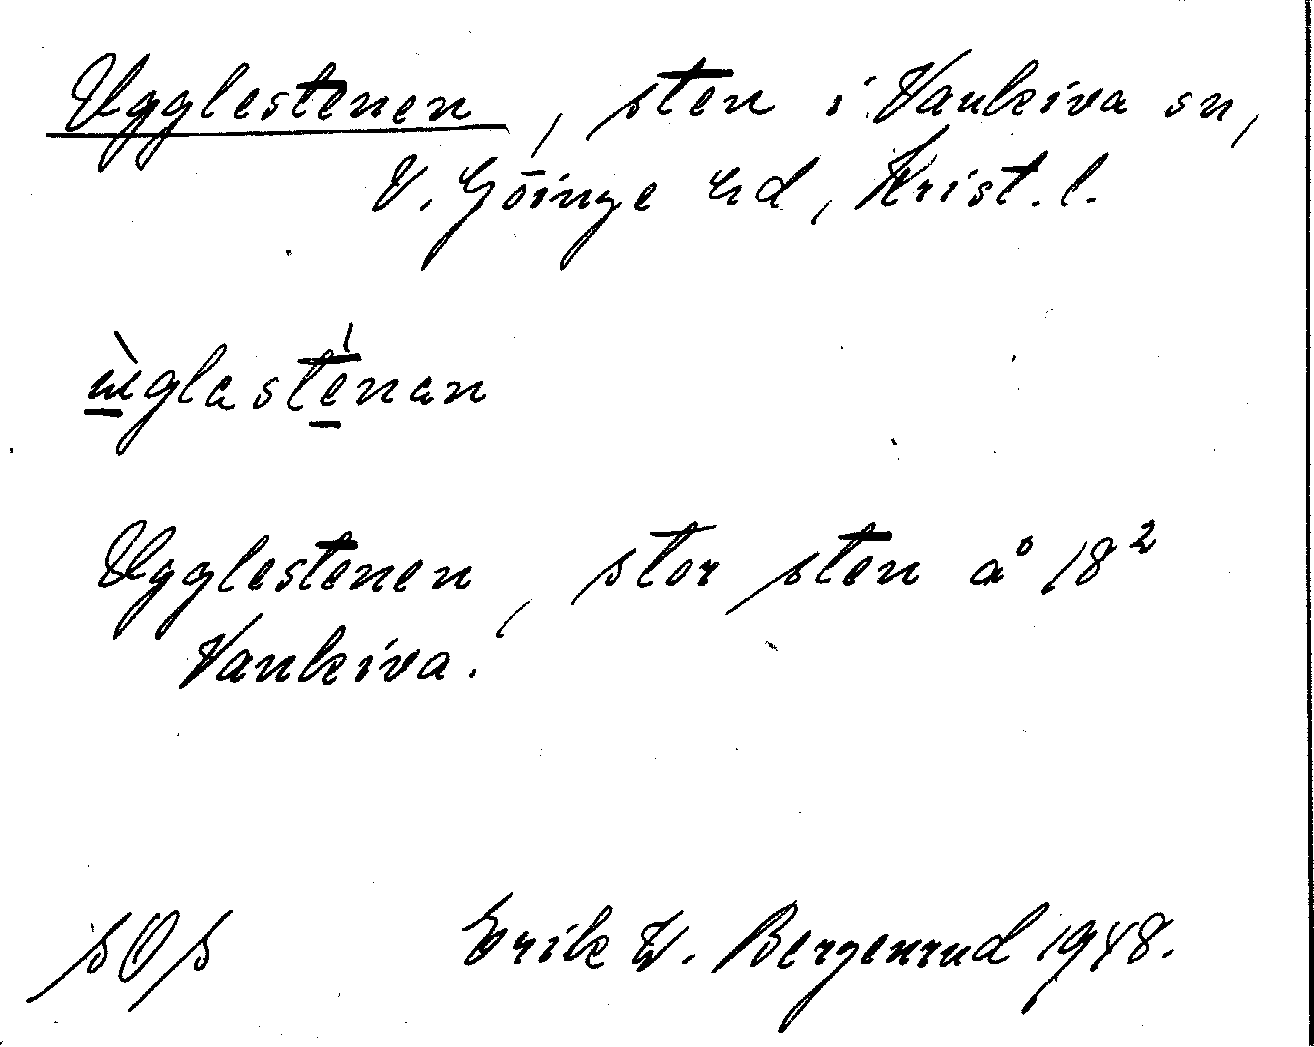 Ugglestenen, sten i Vankiva sn,
V. Göinge hd, Krist. l.
ùglasténan
Ugglestenen, stor sten å 18²
Vankiva.
sOs Erik W. Bergenrud 1948.